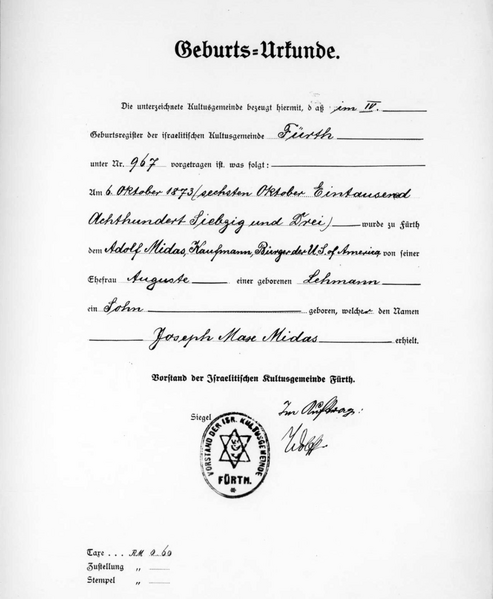 Geburts-Urkunde.
Die unterzeichnete Kultusgemeinde bezeugt hiermit, daß im IV.
Geburtsregister der israelitischen Kultusgemeinde Fürth
unter Nr. 967 vorgetragen ist, was folgt:
Am 6. Oktober 1873 (sechsten Oktober Eintausend
Achthundert Siebzig und Drei) wurde zu Fürth
dem Adolf Midas, Kaufmann, Bürger der U.S. of America von seiner
Ehefrau Auguste einer geborenen Lehmann
ein Sohn geboren, welcher den Namen
Joseph Max Midas erhielt.
Vorstand der Israelitischen Kultusgemeinde Fürth.
Siegel
Im Auftrag:
VORSTAND DER ISR. KULTUSGEMEINDE
FÜRTH.
Taxe . . . RM 0.60
Zustellung "
Stempel "